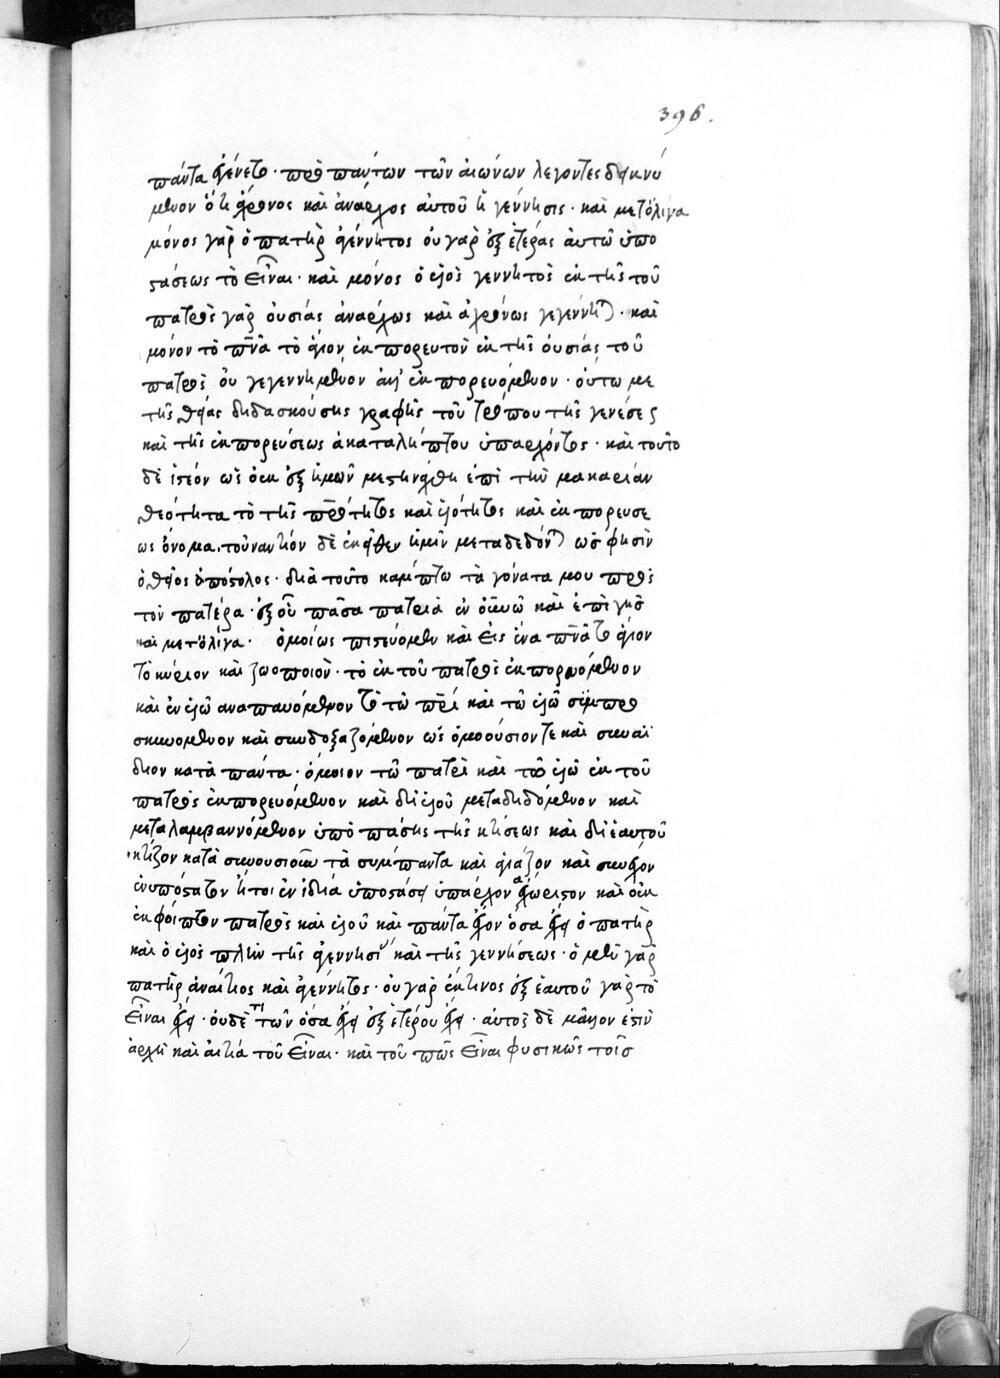 396.
πάντα ἐγένετο· πρὸ πάντων τῶν αἰώνων λέγοντες δεικνύ
μενον ὅτι ἄχρονος καὶ ἄναρχος αὐτοῦ ἡ γέννησις· καὶ μετ' ὀλίγα
μόνος γὰρ ὁ πατὴρ ἀγέννητος οὐ γὰρ ἐξ ἑτέρας ἀυτῶ ὑπο
στάσεως τὸ εἶναι· καὶ μόνος ὁ υἱὸς γεννητὸς ἐκ τῆς τοῦ
πατρὸς γὰρ οὐσίας ἀνάρχως καὶ ἀχρόνως γεγέννηται· καὶ
μόνον τὸ πν̅α τὸ ἅγιον ἐκπορευτὸν ἐκ τῆς ὀυσίας τοῦ
πατρὸς ὀυ γεγεννημένον ἀλλ' ἐκπορευόμενον· ὅυτω με
τῆς θείας διδασκούσης γραφῆς τοῦ τρόπου τῆς γενέσεως
καὶ τῆς ἐκπορεύσεως ἀκαταλήπτου ὑπάρχοντος· καὶ τοῦτο
δὲ ἰστέον ὡς ὀυκ ἐξ ἡμῶν μετηνέχθη ἐπὶ τὴν μακαρίαν
θεότητα τὸ τῆς πρ̅ότητος καὶ υἱότητος καὶ ἐκπορευσε
ως ὄνομα· τοὐναντίον δὲ ἐκεῖθεν ἡμῖν μεταδέδοται ὥς φησιν
ὁ θεῖος ἀπόστολος· διὰ τοῦτο κάμπτω τὰ γόνατα μου πρὸς
τὸν πατέρα· ἐξ οὗ πᾶσα πατριὰ ἐν οὐ̅νω καὶ ἐπὶ γῆς
καὶ μετ' ὀλίγα· ὁμοίως πιστεύομεν καὶ εἰς ἕνα πν̅α τὸ ἅγιον
Τὸ κύριον καὶ ζωοποιὸν· τὸ ἐκ τοῦ πατρὸς ἐκπορευόμενον
καὶ ἐν υἱῶ αναπαυόμενον Τὸ τῶ πρ̅ι καὶ τῶ υἱῶ σύμπρο
σκυνομενον καὶ συνδοξαζόμενον ὡς ὁμοούσιον τε καὶ συναί
διον κατὰ πάντα· ὅμοιον τῶ πατρὶ καὶ τῶ υἱῶ ἐκ τοῦ
πατρὸς ἐκπορευόμενον καὶ δι' υἱοῦ μεταδιδόμενον καὶ
μεταλαμβαννόμενον ὑπὸ πάσης τῆς κτίσεως καὶ δι' ἑαυτοῦ
κτίζον κατὰ συνουσιοῦν τὰ σύμπαντα καὶ ἁγιάζον καὶ συνέχον
ἐνυπόστατον ἤτοι ἐν ἰδία ὑποστάσει ὑπάρχον ἀχώριστον καὶ ὀυκ
ἐκφοίτητον πατρὸς καὶ υἱοῦ καὶ πάντα ἔχον ὅσα ἔχει ὁ πατὴρ
καὶ ὁ υἱὸς πλὴν τῆς ἀγεννησίας καὶ τῆς γεννήσεως· ὁ μὲν γὰρ
πατὴρ ἀναίτιος καὶ ἀγέννητος· οὐ γὰρ ἐκ τινος ἐξ ἑαυτοῦ γὰρ τὸ
εἶναι ἔχει· οὐδὲ τι τῶν ὅσα ἔχει ἐξ ἑτέρου ἔχει· αὐτος δὲ μᾶλλον ἐστὶν
ἀρχὴ καὶ αἰτία τοῦ εἶναι· καὶ τοῦ πῶς εἶναι φυσικῶς τοῖς